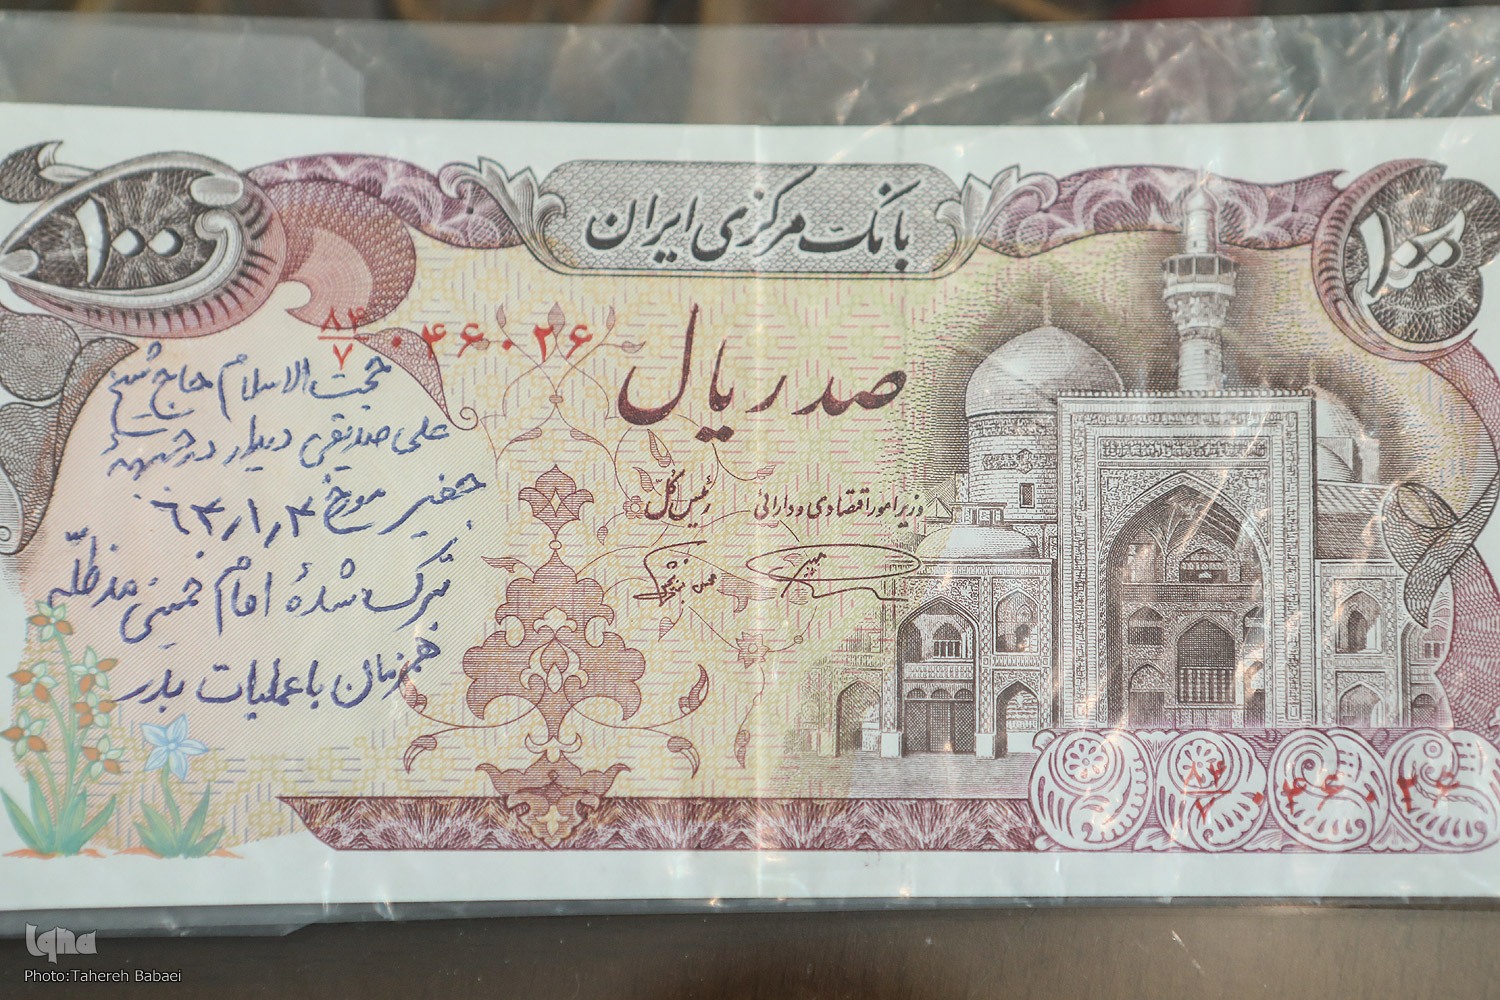 بانک مرکزی ایران
۱۰۰
۱۰۰
۸۴/۷ ۰۴۶۰۲۶
صد ریال
رئیس کل
وزیر امور اقتصادی و دارائی
حجت الاسلام حاج شیخ
علی صدیقی دیدار در جبههٔ
جفیر مورخ ۶۳/۱/۴
تبرک شدهٔ امام خمینی مدظلّه
همزمان با عملیات بدر
۸۴/۷ ۰۴۶۰۲۶
Iqna
Photo:Tahereh Babaei